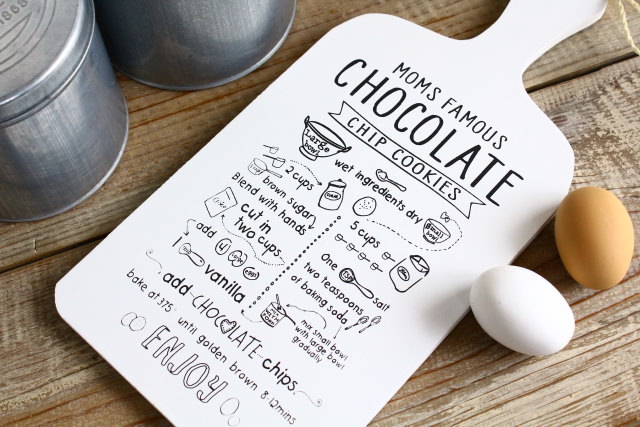 MOMS FAMOUS
CHOCOLATE
CHIP COOKIES
Large
bowl
wet ingredients dry
small
bowl
2 cups
brown sugar
Blend with hands
cut in
two cups
add 4 eggs
1 vanilla
5 cups
One salt
two teaspoons
of baking soda
mix small bowl
with large bowl
gradually
add-CHOCOLATE-chips
bake at 375° until golden brown 8-12mins
ENJOY
1868